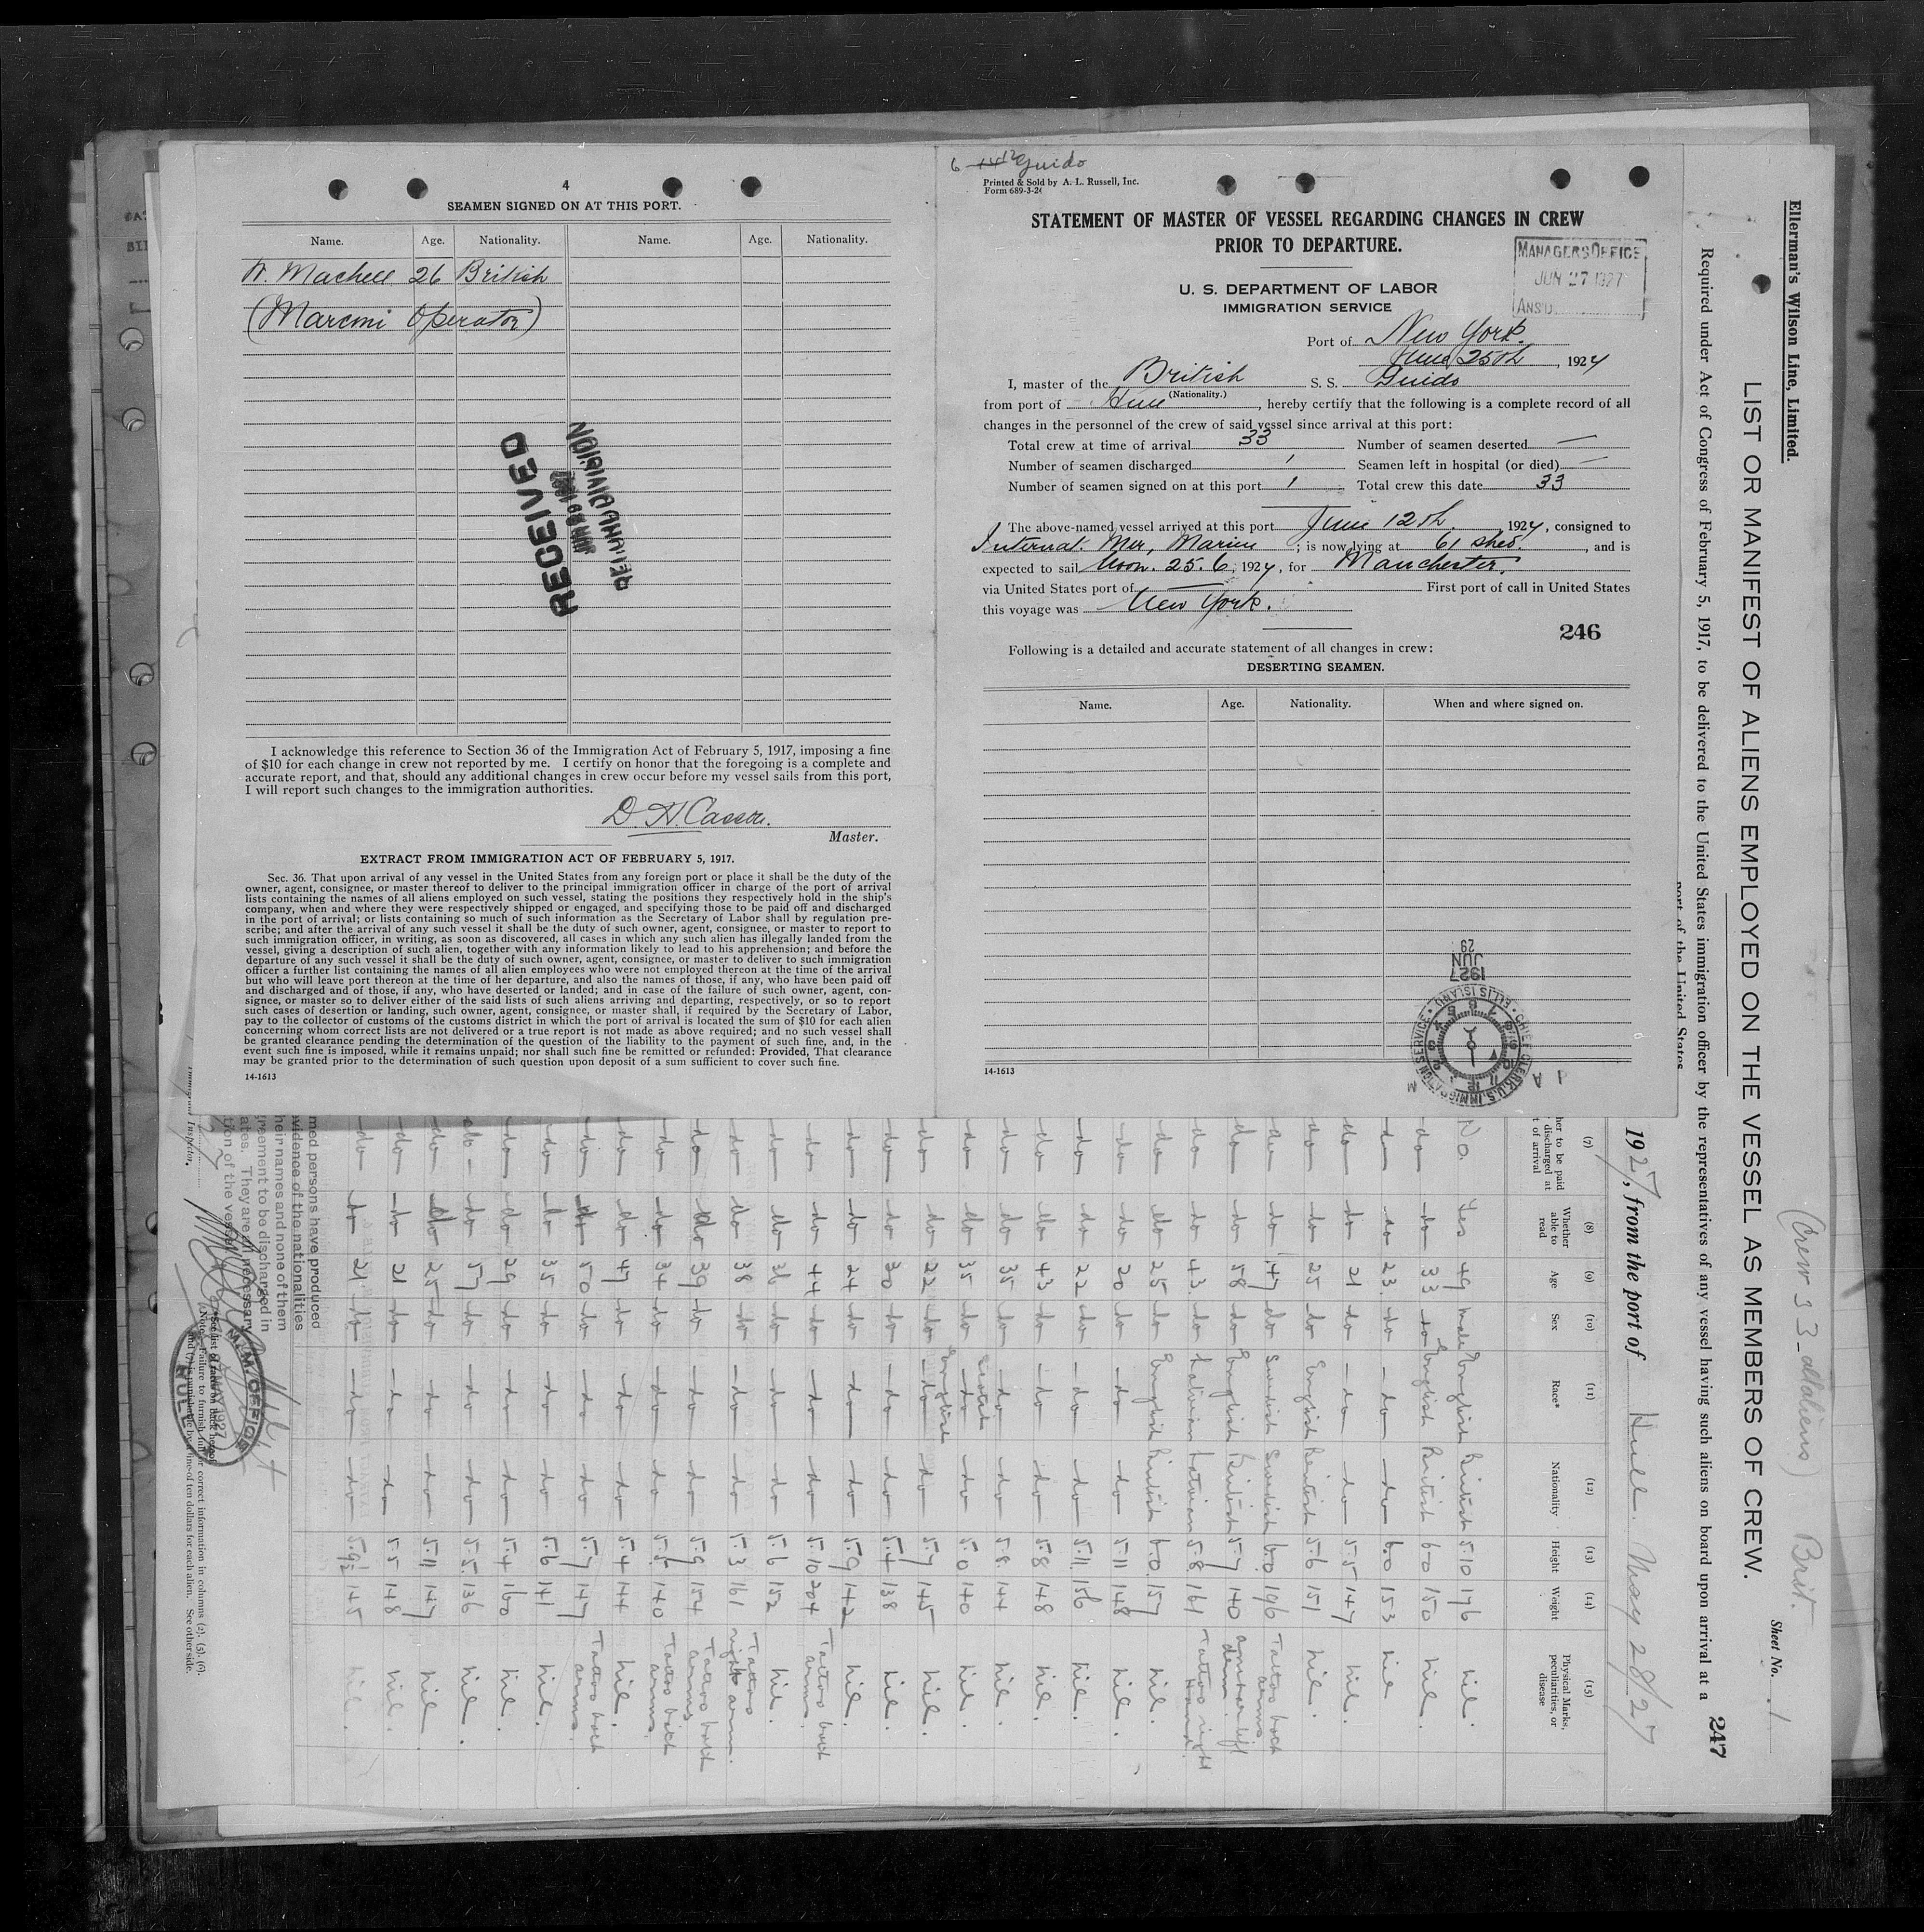 4
SEAMEN SIGNED ON AT THIS PORT.
Name. Age. Nationality. Name. Age. Nationality.
W. Machell 26 British
(Marconi Operator)
RECEIVED
I acknowledge this reference to Section 36 of the Immigration Act of February 5, 1917, imposing a fine
of $10 for each change in crew not reported by me. I certify on honor that the foregoing is a complete and
accurate report, and that, should any additional changes in crew occur before my vessel sails from this port,
I will report such changes to the immigration authorities.
Master.
EXTRACT FROM IMMIGRATION ACT OF FEBRUARY 5, 1917.
Sec. 36. That upon arrival of any vessel in the United States from any foreign port or place it shall be the duty of the
owner, agent, consignee, or master thereof to deliver to the principal immigration officer in charge of the port of arrival
lists containing the names of all aliens employed on such vessel, stating the positions they respectively hold in the ship's
company, when and where they were respectively shipped or engaged, and specifying those to be paid off and discharged
in the port of arrival; or lists containing so much of such information as the Secretary of Labor shall by regulation pre-
scribe; and after the arrival of any such vessel it shall be the duty of such owner, agent, consignee, or master to report to
such immigration officer, in writing, as soon as discovered, all cases in which any such alien has illegally landed from the
vessel, giving a description of such alien, together with any information likely to lead to his apprehension; and before the
departure of any such vessel it shall be the duty of such owner, agent, consignee, or master to deliver to such immigration
officer a further list containing the names of all alien employees who were not employed thereon at the time of the arrival
but who will leave port thereon at the time of her departure, and also the names of those, if any, who have been paid off
and discharged and of those, if any, who have deserted or landed; and in case of the failure of such owner, agent, con-
signee, or master so to deliver either of the said lists of such aliens arriving and departing, respectively, or so to report
such cases of desertion or landing, such owner, agent, consignee, or master shall, if required by the Secretary of Labor,
pay to the collector of customs of the customs district in which the port of arrival is located the sum of $10 for each alien
concerning whom correct lists are not delivered or a true report is not made as above required; and no such vessel shall
be granted clearance pending the determination of the question of the liability to the payment of such fine, and, in the
event such fine is imposed, while it remains unpaid; nor shall such fine be remitted or refunded: Provided, That clearance
may be granted prior to the determination of such question upon deposit of a sum sufficient to cover such fine.
14-1613
Guido
Printed & Sold by A. L. Russell, Inc.
Form 689-3-26
STATEMENT OF MASTER OF VESSEL REGARDING CHANGES IN CREW
PRIOR TO DEPARTURE.
MANAGERS OFFICE
JUN 27 1927
ANS'D
U. S. DEPARTMENT OF LABOR
IMMIGRATION SERVICE
Port of New York.
June 25th, 1927
I, master of the British S. S. Guido
(Nationality.)
from port of Hull, hereby certify that the following is a complete record of all
changes in the personnel of the crew of said vessel since arrival at this port:
Total crew at time of arrival 33 Number of seamen deserted —
Number of seamen discharged 1 Seamen left in hospital (or died) —
Number of seamen signed on at this port 1 Total crew this date 33
The above-named vessel arrived at this port June 12th, 1927, consigned to
Internat. Mer, Marine; is now lying at 61 shed., and is
expected to sail Noon. 25.6, 1927, for Manchester.
via United States port of — First port of call in United States
this voyage was New York.
246
Following is a detailed and accurate statement of all changes in crew:
DESERTING SEAMEN.
Name. Age. Nationality. When and where signed on.
1927
JUN
29
14-1613
Ellerman's Wilson Line, Limited.
(Crew 33 all aliens) Brit.
Sheet No. 1
LIST OR MANIFEST OF ALIENS EMPLOYED ON THE VESSEL AS MEMBERS OF CREW.
Required under Act of Congress of February 5, 1917, to be delivered to the United States immigration officer by the representatives of any vessel having such aliens on board upon arrival at a
port of the United States
247
1927, from the port of Hull. May 28/27
(7) (8) (9) (10) (11) (12) (13) (14) (15)
Whether able to read Age Sex Race* Nationality Height Weight Physical Marks, peculiarities, or disease
No. Yes 49 Male English British 5.10 176 Nil.
do do 33 do English British 6.0 150 Nil.
do do 23 do do do 6.0 153 Nil
do do 21 do do do 5.5 147 Nil.
do do 25 do English British 5.6 151 Nil.
do do 47 do Swedish Swedish 6.0 196 Tattoo both arms
do do 58 do English British 5.7 140
do do 43 do Latvian Latvian 5.8 161 Tattoo right hand
do do 25 do English British 6.0 157 Nil.
do do 20 do do do 5.11 148 Nil.
do do 22 do do do 5.11 156 Nil.
do do 43 do do do 5.8 148 Nil.
do do 35 do do do 5.8 144 Nil.
do do 35 do Scotch do 5.0 140 Nil.
do do 22 do English do 5.7 145 Nil.
do do 30 do do do 5.4 138 Nil.
do do 24 do do do 5.9 142 Nil.
do do 44 do do do 5.10 204 Tattoo both arms.
do do 36 do do do 5.6 152 Nil.
do do 38 do do do 5.3 161 Tattoo right arm.
do do 39 do do do 5.9 154 Tattoo both arms
do do 34 do do do 5.5 140 Tattoo both arms
do do 47 do do do 5.4 144 Nil.
do do 50 do do do 5.7 147 Tattoo both arms
do do 35 do do do 5.6 141 Nil.
do do 29 do do do 5.4 160 Nil.
do do 57 do do do 5.5 136 Nil.
do do 25 do do do 5.11 147 Nil
do do 21 do do do 5.5 148 Nil.
do do 21 do do do 5.9½ 145 Nil.